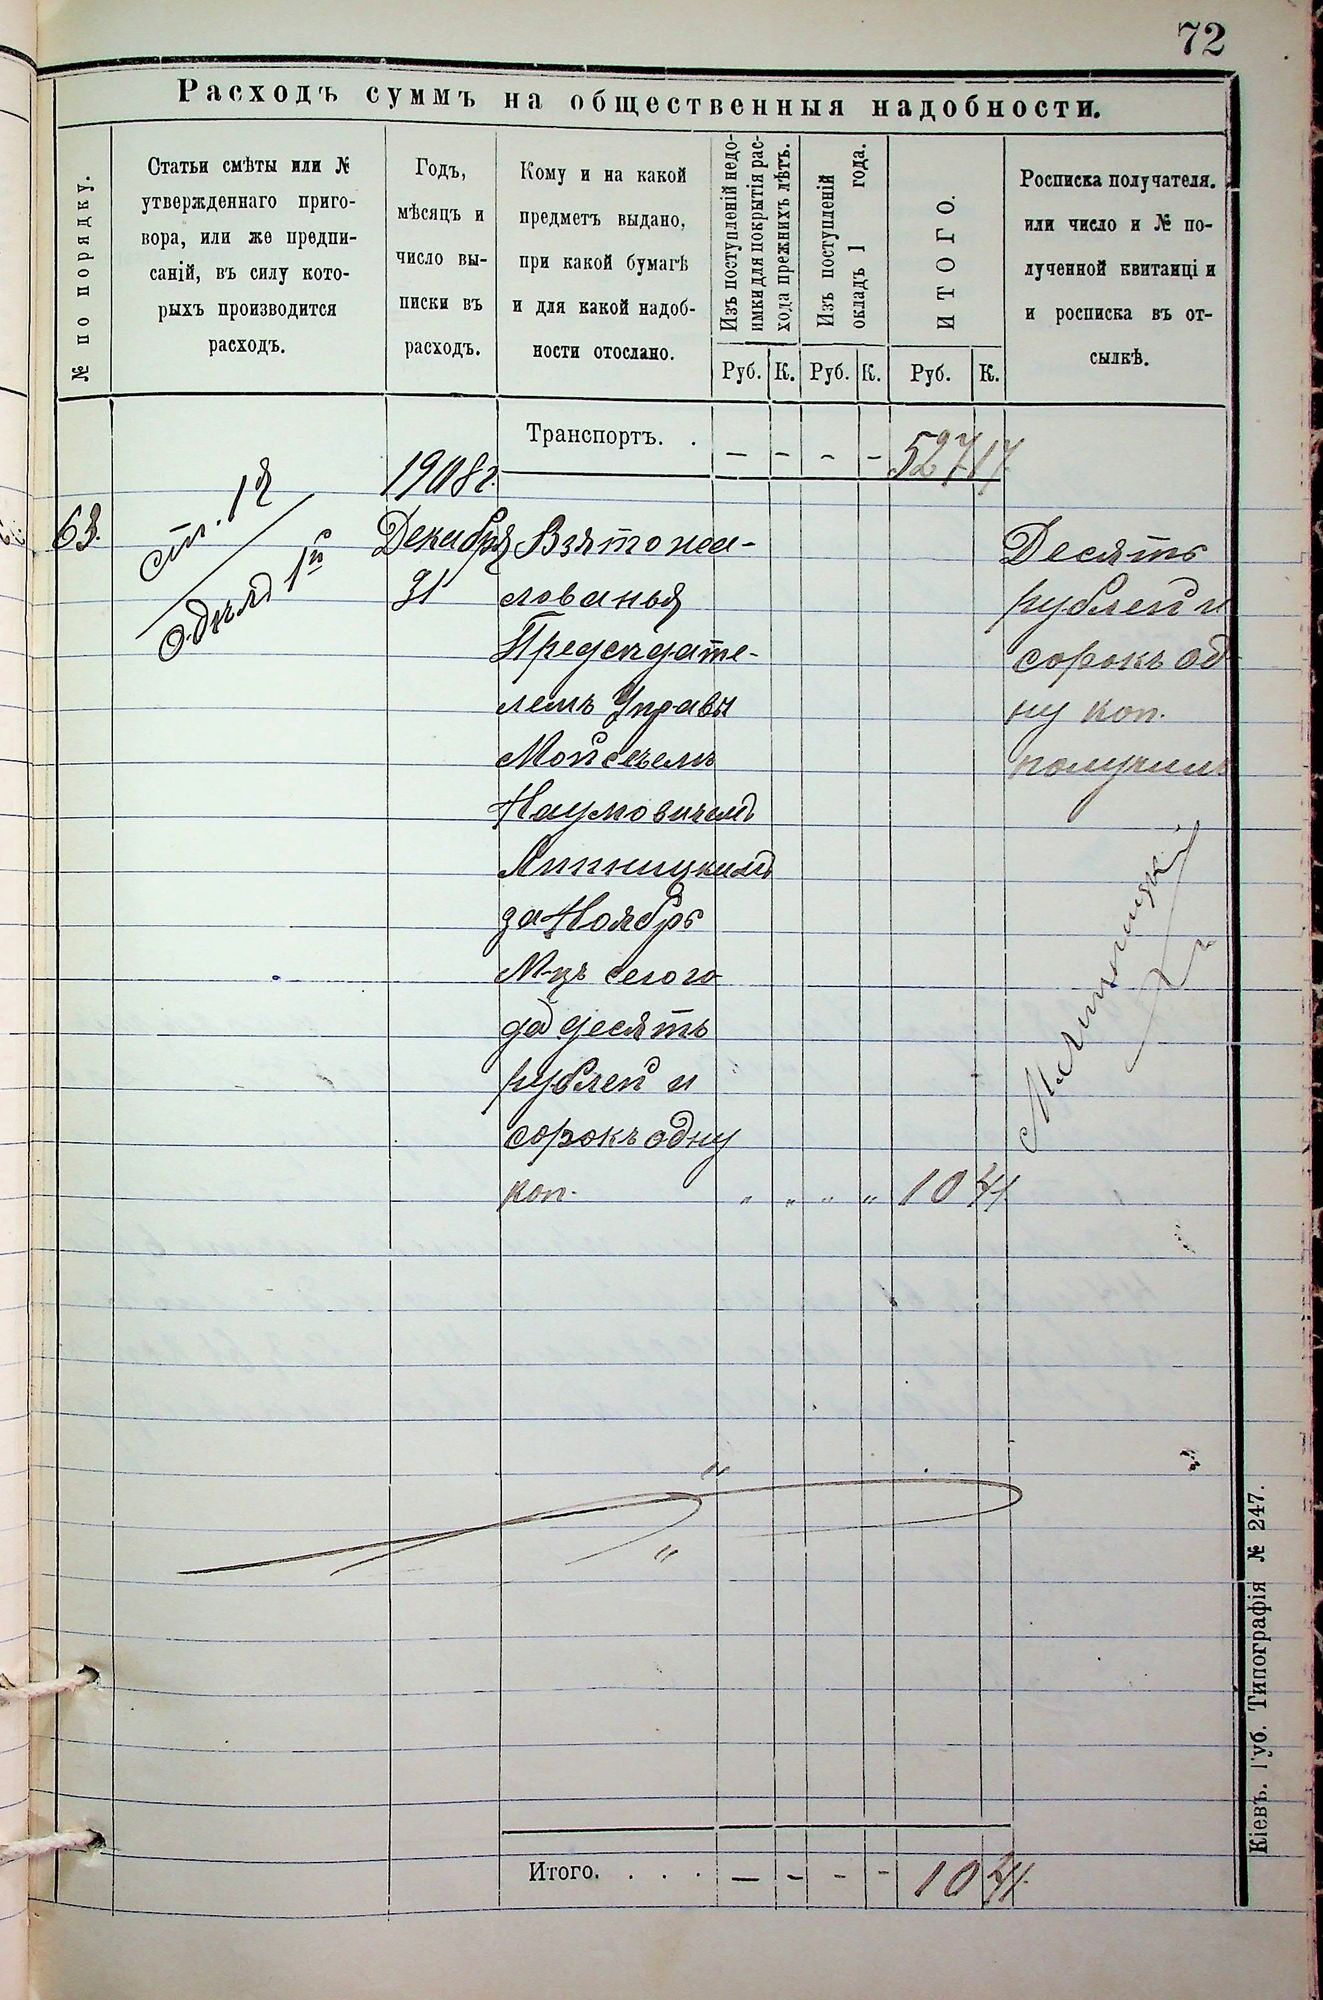 72
Расходъ суммъ на общественныя надобности.
№ по порядку.
Статьи смѣты или №
утвержденнаго приго-
вора, или же предпи-
саній, въ силу кото-
рыхъ производится
расходъ.
Годъ,
мѣсяцъ и
число вы-
писки въ
расходъ.
Кому и на какой
предметъ выдано,
при какой бумагѣ
и для какой надоб-
ности отослано.
Изъ поступленій недо-
имки для покрытія рас-
хода прежнихъ лѣтъ.
Изъ поступленій
окладъ 1 года.
ИТОГО.
Росписка получателя.
или число и № по-
лученной квитанціи
и росписка въ от-
сылкѣ.
Руб. К. Руб. К. Руб. К.
Транспортъ. . – – – – 527 17
1908 г.
63.
ст. 1я
отдѣлъ 1й
Декабря
31
Взято жа-
лованья
Предсѣдате-
лемъ Управы
Мойсеемъ
Наумовичемъ
Липницкимъ
за Ноябрь
М-цъ сего го-
да десять
рублей и
сорокъ одну
коп. " " " " 10 41
Десять
рублей и
сорокъ од
ну коп.
получилъ
М. Липницкій
Итого. . . . – – – – 10 41.
Кіевъ. Губ. Типографія № 247.